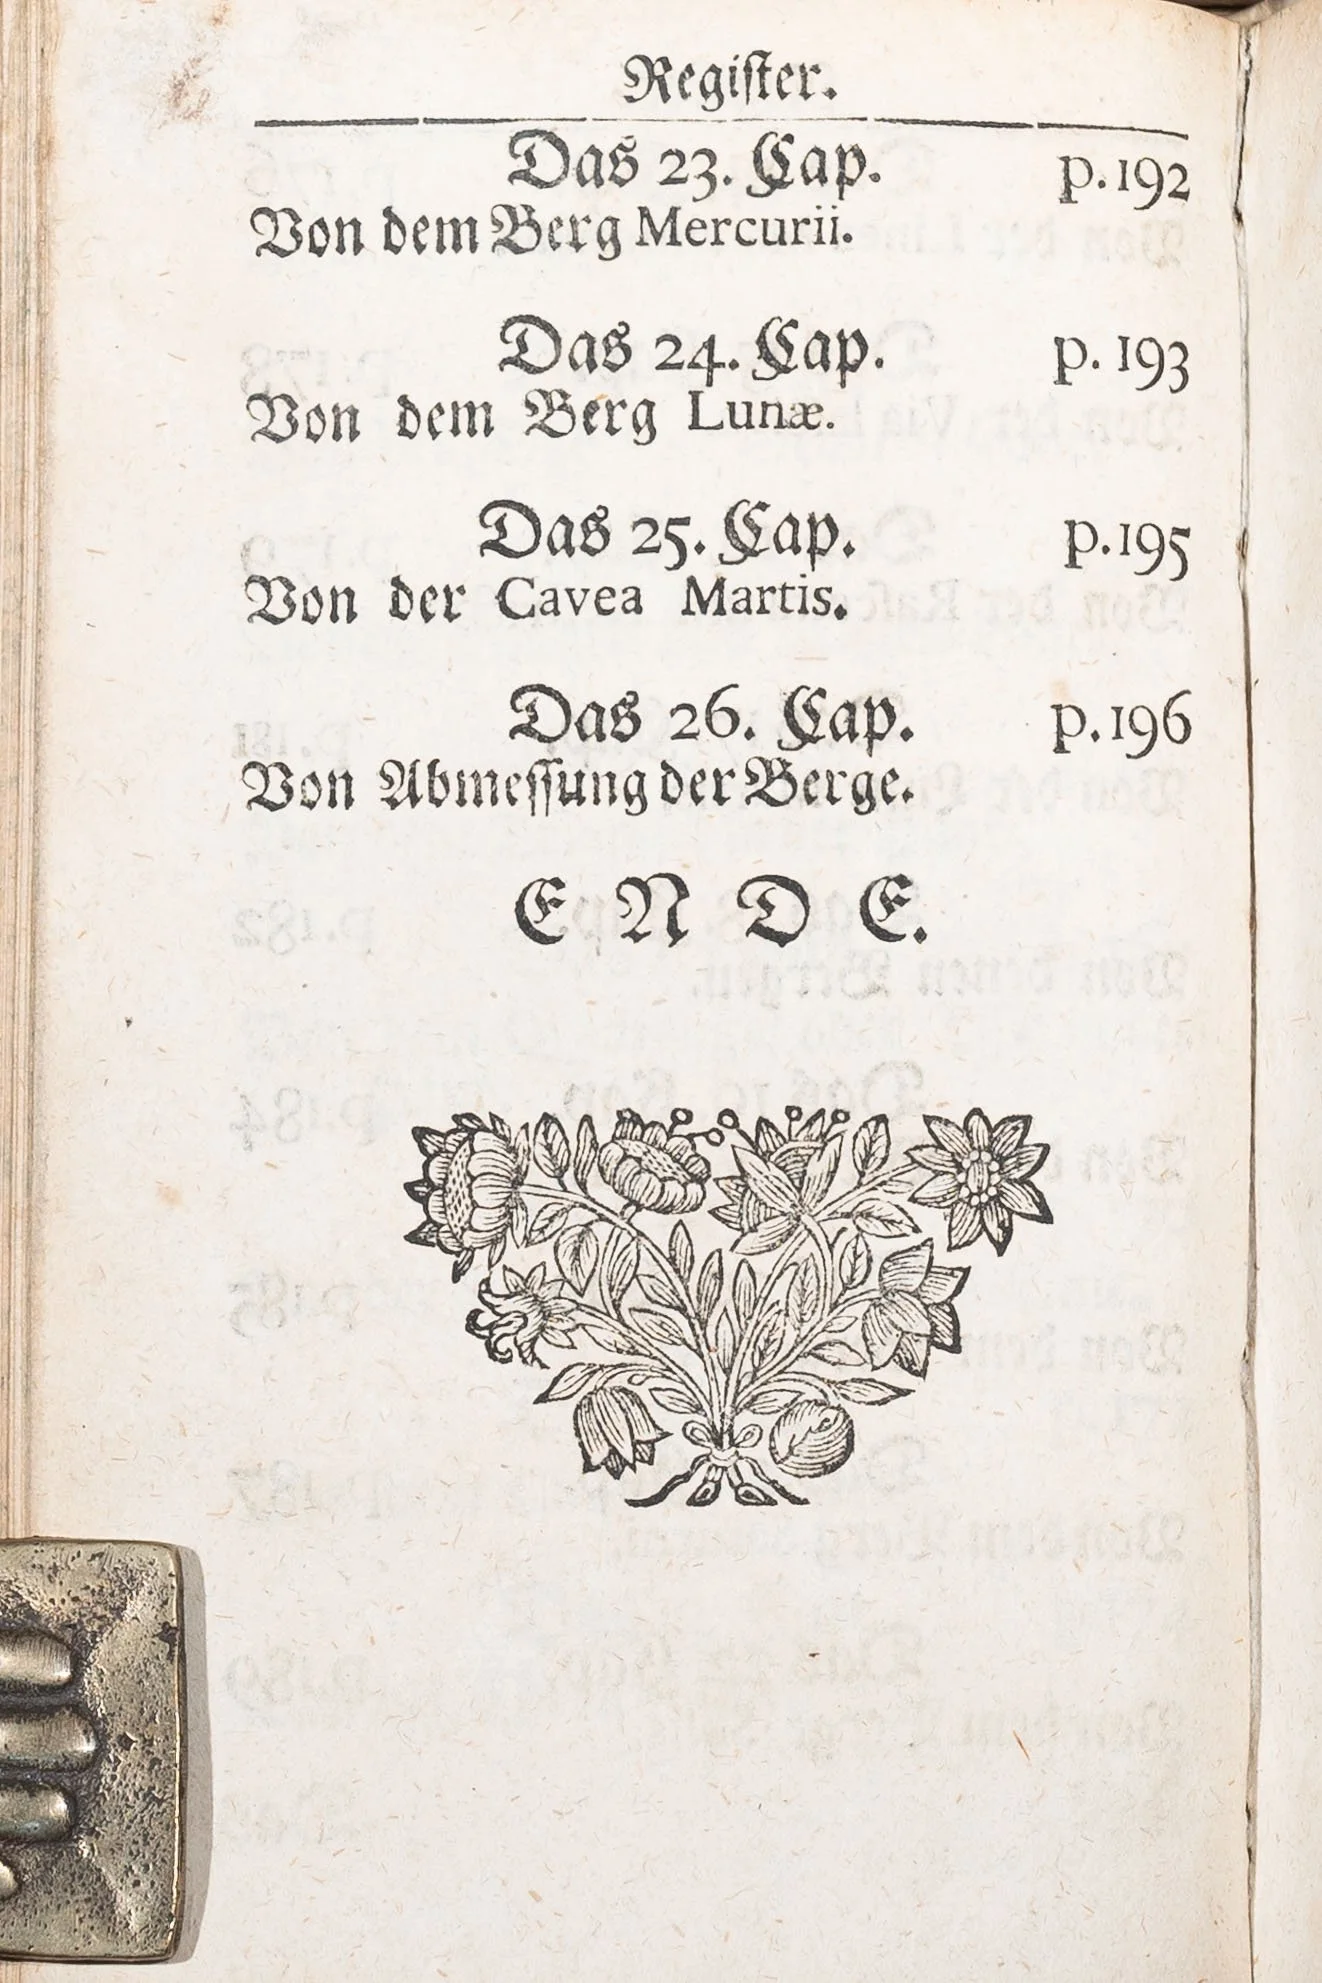 Regiſter.
Das 23. Cap. p. 192
Von dem Berg Mercurii.
Das 24. Cap. p. 193
Von dem Berg Lunæ.
Das 25. Cap. p. 195
Von der Cavea Martis.
Das 26. Cap. p. 196
Von Abmeſſung der Berge.
E N D E.